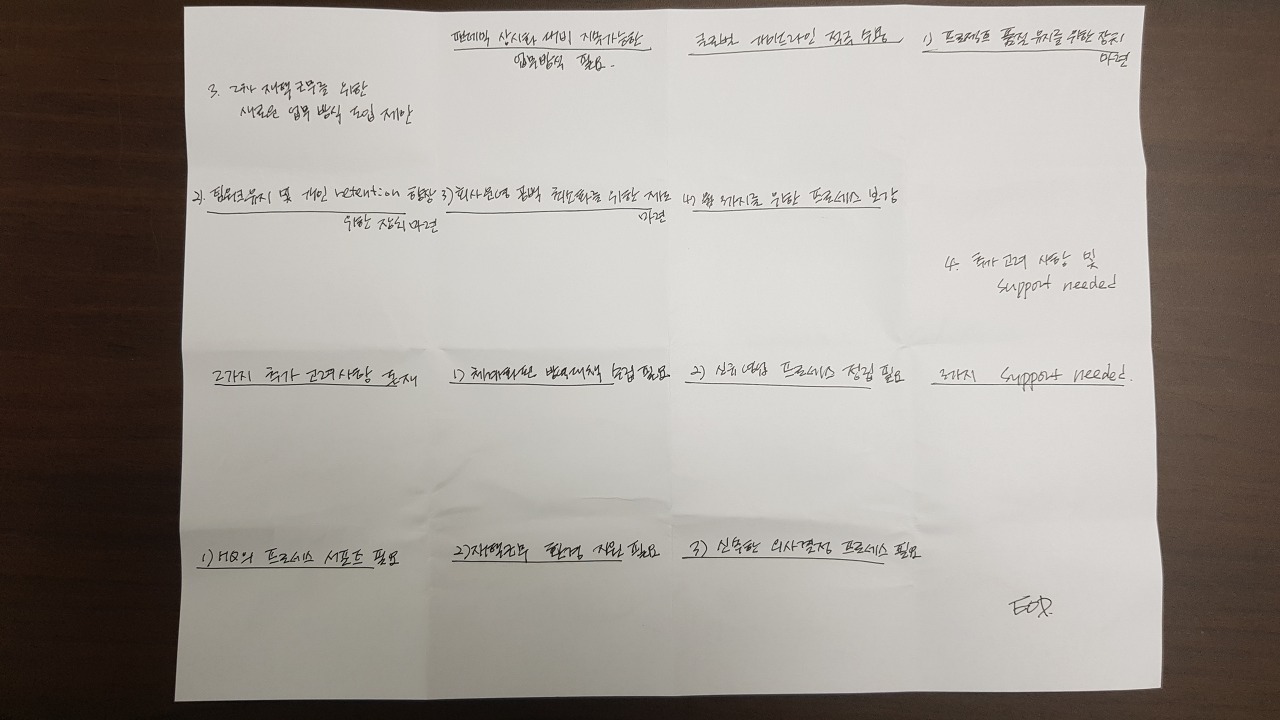 팬데믹 상시화 대비 지속가능한
업무방식 필요.
글로벌 가이드라인 적극 수용
1) 프로젝트 품질 유지를 위한 장치
마련
3. 재택근무를 위한
새로운 업무 방식 도입 제안
2) 팀워크 유지 및 개인 retention 향상
위한 장치 마련
3) 회사 운영 공백 최소화를 위한 제도
마련
4) 위한 프로세스 보강
4. 추가 고려 사항 및
support needed
2가지 추가 고려사항 존재
1) 방역대책 수립 필요
2) 프로세스 정립 필요
3가지 support needed.
1) HQ의 프로세스 서포트 필요
2) 재택근무 환경 지원 필요
3) 신속한 의사결정 프로세스 필요
EOD.